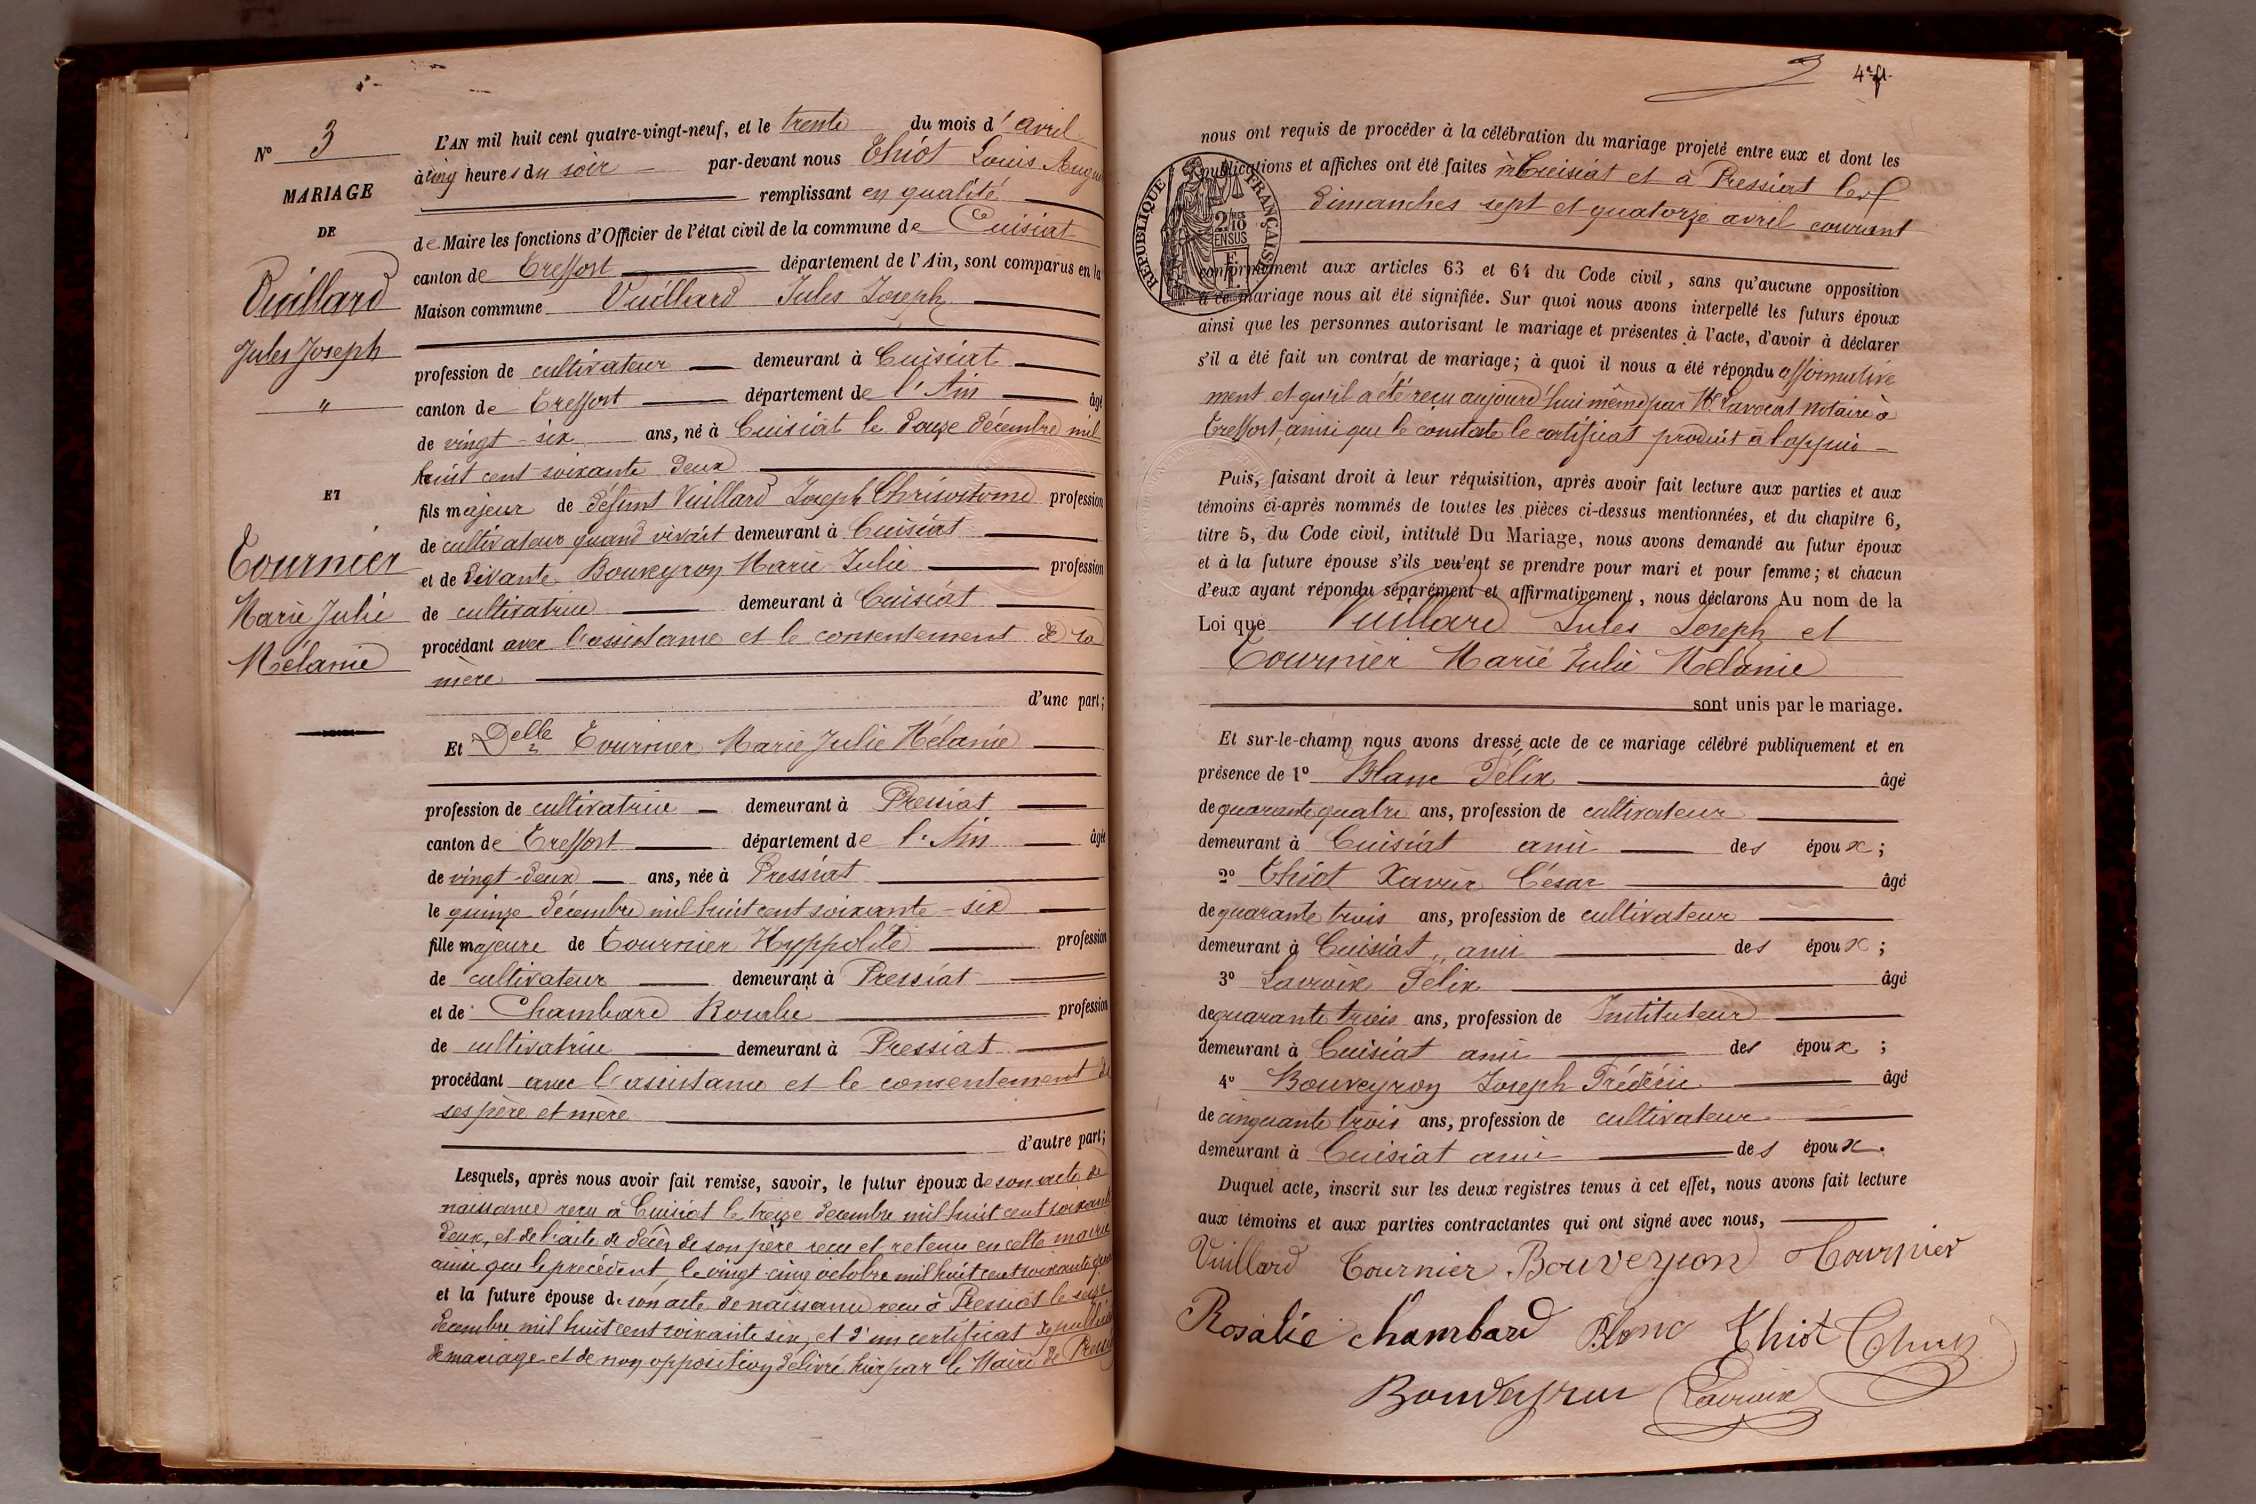 Nº 3
MARIAGE
DE
Vuillard
Jules Joseph
"
ET
Tournier
Marie Julie
Mélanie
L'AN mil huit cent quatre-vingt-neuf, et le trente du mois d'avril
à cinq heures du soir par-devant nous Thiot Louis Augus
remplissant en qualité
de Maire les fonctions d'Officier de l'état civil de la commune de Cuisiat
canton de Treffort département de l'Ain, sont comparus en la
Maison commune Vuillard Jules Joseph
profession de cultivateur demeurant à Cuisiat
canton de Treffort département de l'Ain âgé
de vingt-six ans, né à Cuisiat le douze décembre mil
huit cent soixante deux
fils majeur de défunt Vuillard Joseph Chrisostome profession
de cultivateur quand vivait demeurant à Cuisiat
et de vivante Bouveyron Marie Julie profession
de cultivatrice demeurant à Cuisiat
procédant avec l'assistance et le consentement de sa
mère
d'une part;
Et Delle Tournier Marie Julie Mélanie
profession de cultivatrice demeurant à Pressiat
canton de Treffort département de l'Ain âgée
de vingt-deux ans, née à Pressiat
le quinze décembre mil huit cent soixante-six
fille majeure de Tournier Hyppolite profession
de cultivateur demeurant à Pressiat
et de Chambard Rosalie profession
de cultivatrice demeurant à Pressiat
procédant avec l'assistance et le consentement de
ses père et mère
d'autre part;
Lesquels, après nous avoir fait remise, savoir, le futur époux de son acte de
naissance reçu à Cuisiat le treize décembre mil huit cent soixante
deux, et de l'acte de décès de son père reçu et retenu en cette mairie
ainsi que le précédent, le vingt-cinq octobre mil huit cent soixante
et la future épouse de son acte de naissance reçu à Pressiat le seize
décembre mil huit cent soixante six, et d'un certificat de publication
de mariage et de non opposition délivré hier par le Maire de Pressiat
4e f.
nous ont requis de procéder à la célébration du mariage projeté entre eux et dont les
publications et affiches ont été faites à Cuisiat et à Pressiat les
dimanches sept et quatorze avril courant
RÉPUBLIQUE FRANÇAISE
2/10
EN SUS
conformément aux articles 63 et 64 du Code civil, sans qu'aucune opposition
à ce mariage nous ait été signifiée. Sur quoi nous avons interpellé les futurs époux
ainsi que les personnes autorisant le mariage et présentes à l'acte, d'avoir à déclarer
s'il a été fait un contrat de mariage; à quoi il nous a été répondu affirmative
ment et qu'il a été reçu aujourd'hui même par Me Lavocat notaire à
Treffort, ainsi que le constate le certificat produit à l'appui
Puis, faisant droit à leur réquisition, après avoir fait lecture aux parties et aux
témoins ci-après nommés de toutes les pièces ci-dessus mentionnées, et du chapitre 6,
titre 5, du Code civil, intitulé Du Mariage, nous avons demandé au futur époux
et à la future épouse s'ils veulent se prendre pour mari et pour femme; et chacun
d'eux ayant répondu séparément et affirmativement, nous déclarons Au nom de la
Loi que Vuillard Jules Joseph et
Tournier Marie Julie Mélanie
sont unis par le mariage.
Et sur-le-champ nous avons dressé acte de ce mariage célébré publiquement et en
présence de 1º Blanc Félix âgé
de quarante quatre ans, profession de cultivateur
demeurant à Cuisiat ami des époux;
2º Thiot Xavier César âgé
de quarante trois ans, profession de cultivateur
demeurant à Cuisiat, ami des époux;
3º Lacroix Félix âgé
de quarante trois ans, profession de Instituteur
demeurant à Cuisiat ami des époux;
4º Bouveyron Joseph Frédéric âgé
de cinquante trois ans, profession de cultivateur
demeurant à Cuisiat ami des époux.
Duquel acte, inscrit sur les deux registres tenus à cet effet, nous avons fait lecture
aux témoins et aux parties contractantes qui ont signé avec nous,
Vuillard Tournier Bouveyron Tournier
Rosalie Chambard Blanc Thiot
Bouveyron Lacroix